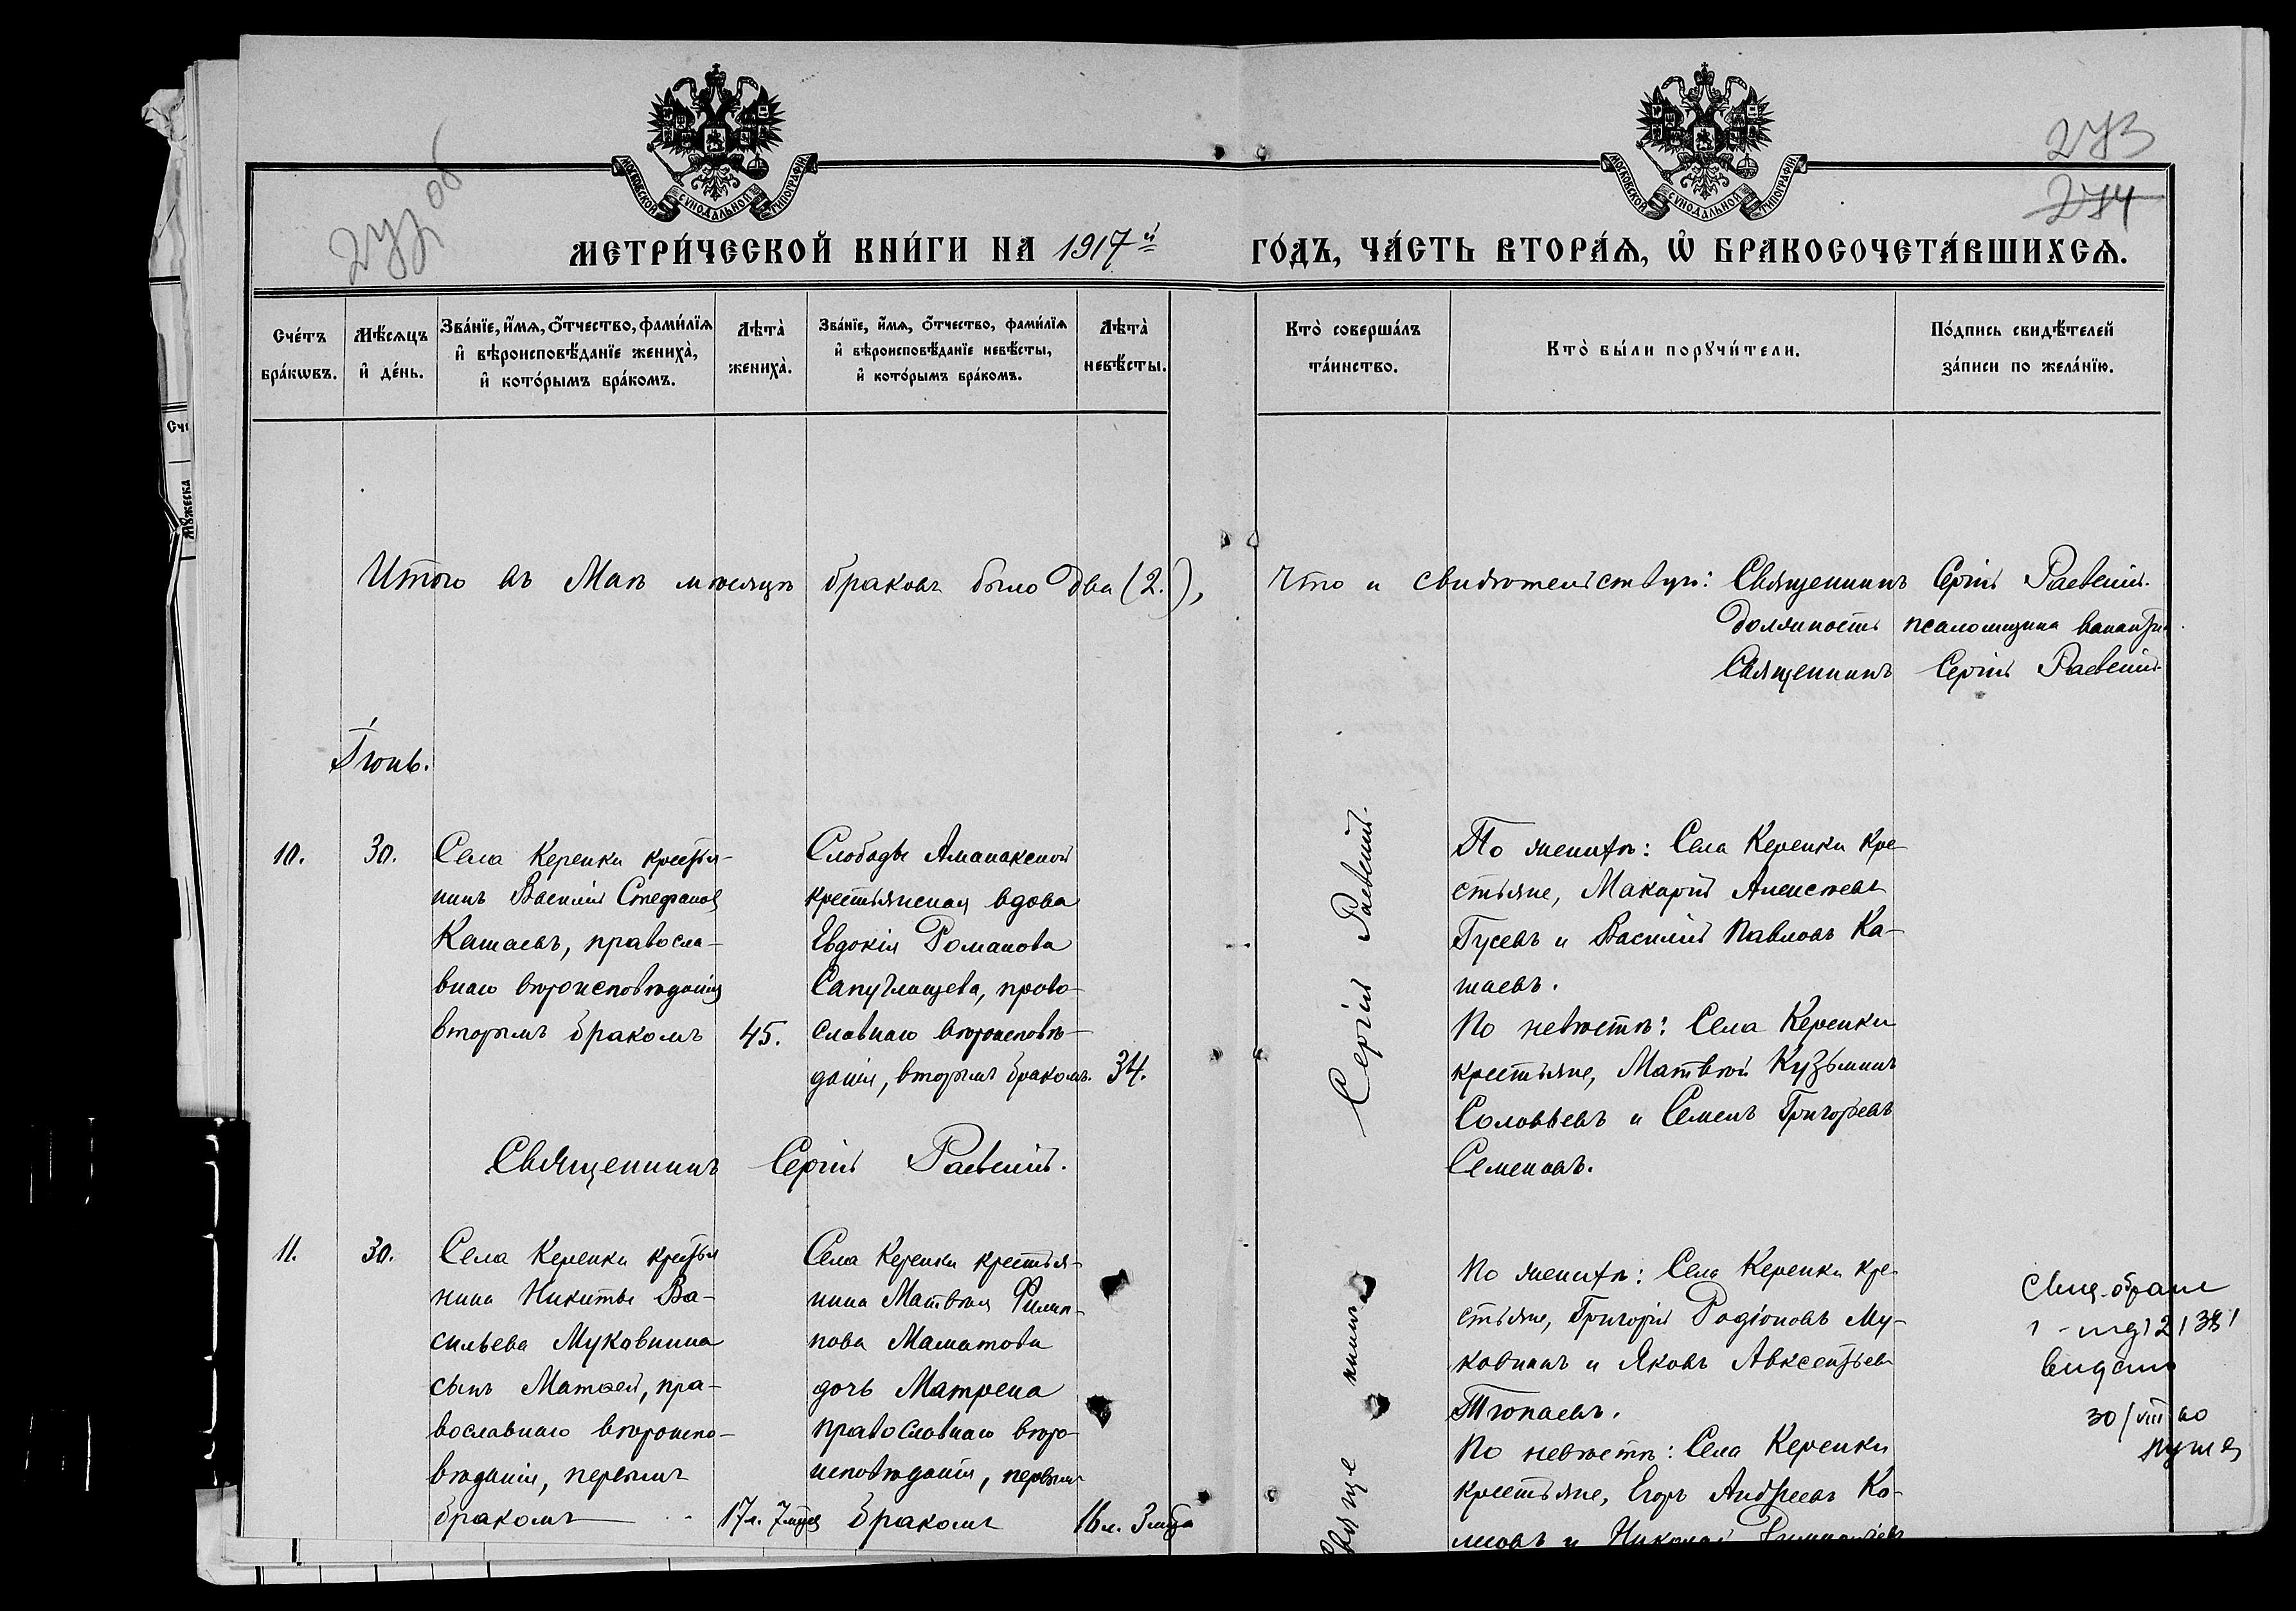 273
274
МОСКОВСКОЙ СУНОДАЛЬНОЙ ТИПОГРАФІИ
МОСКОВСКОЙ СУНОДАЛЬНОЙ ТИПОГРАФІИ
МЕТРИ́ЧЕСКОЙ КНИ́ГИ НА 1917й
ГО́ДЪ, ЧА́СТЬ ВТОРА́Ѧ, Ѡ БРАКОСОЧЕТА́ВШИХСѦ.
Сче́тъ бра́кѡвъ.
Мѣ́сѧцъ и҆ де́нь.
Зва́нїе, и҆́мѧ, ѻ҆́тчество, фами́лїѧ
и҆ вѣроисповѣ́данїе жениха̀,
и҆ кото́рымъ бра́комъ.
Лѣта̀ жениха̀.
Зва́нїе, и҆́мѧ, ѻ҆́тчество, фами́лїѧ
и҆ вѣроисповѣ́данїе невѣ́сты,
и҆ кото́рымъ бра́комъ.
Лѣта̀ невѣ́сты.
Кто̀ соверша́лъ та́инство.
Кто̀ бы́ли порꙋчи́тели.
По́дпись свидѣ́телей за́писи по жела́нїю.
Итого въ Маѣ мѣсяцѣ браковъ было два (2.),
Что и свидѣтельствую: Священникъ Сергій Раевскій.
Должность псаломщика вакантна
Священникъ Сергій Раевскій.
Іюнь.
10.
30.
Села Керенки крестья-
нинъ Василій Стефановъ
Кашаевъ, правосла-
внаго вѣроисповѣданія
вторымъ бракомъ
45.
Слободы Аманакской
крестьянская вдова
Евдокія Романова
православнаго вѣроисповѣ-
данія, вторымъ бракомъ.
34.
Сергій Раевскій.
По женихѣ: Села Керенки кре-
стьяне, Макарій Алексѣевъ
Гусевъ и Василій Павловъ Ка-
шаевъ.
По невѣстѣ: Села Керенки
крестьяне, Матвѣй Кузьминъ
Соловьевъ и Семенъ Григорьевъ
Семеновъ.
Священникъ Сергій Раевскій.
11.
30.
Села Керенки крестья
нина Никиты Ва-
сильева Муковнина
сынъ Матѳей, пра-
вославнаго вѣроиспо-
вѣданія, первымъ
бракомъ
17л. 7мцев
Села Керенки крестья-
нина Матвѣя Филип-
пова Маматова
дочь Матрена
православнаго вѣро-
исповѣданія, первымъ
бракомъ
16л. 3мца
Священникъ
По женихѣ: Села Керенки кре-
стьяне, Григорій Родіоновъ Му-
ковнинъ и Яковъ Авксентьевъ
Тюпаевъ.
По невѣстѣ: Села Керенки
крестьяне, Егоръ Андреевъ Ко-
мовъ и Николай
30/VIII 60